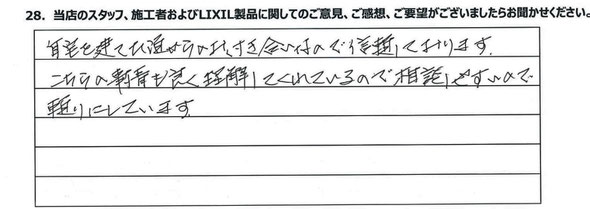 28. 当店のスタッフ、施工者およびLIXIL製品に関してのご意見、ご感想、ご要望がございましたらお聞かせください。
自宅を建てた頃からのお付き合いなので信頼しております。
こちらの事情も良く理解してくれているので相談しやすいので
頼りにしています。